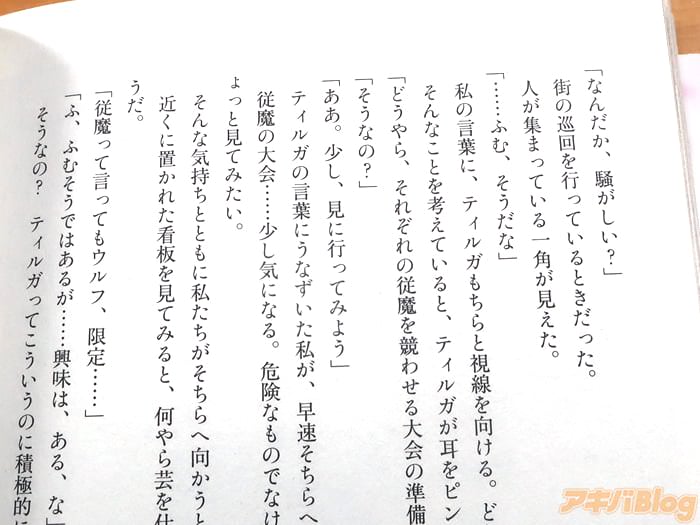 「なんだか、騒がしい?」
街の巡回を行っているときだった。
人が集まっている一角が見えた。
「……ふむ、そうだな」
私の言葉に、ティルガもちらと視線を向ける。ど
そんなことを考えていると、ティルガが耳をピン
「どうやら、それぞれの従魔を競わせる大会の準備
「そうなの?」
「ああ。少し、見に行ってみよう」
ティルガの言葉にうなずいた私が、早速そちらへ
従魔の大会……少し気になる。危険なものでなけ
ょっと見てみたい。
そんな気持ちとともに私たちがそちらへ向かうと
近くに置かれた看板を見てみると、何やら芸を仕
うだ。
「従魔って言ってもウルフ、限定……」
「ふ、ふむそうではあるが……興味は、ある、な」
そうなの? ティルガってこういうのに積極的に
アキバBlog